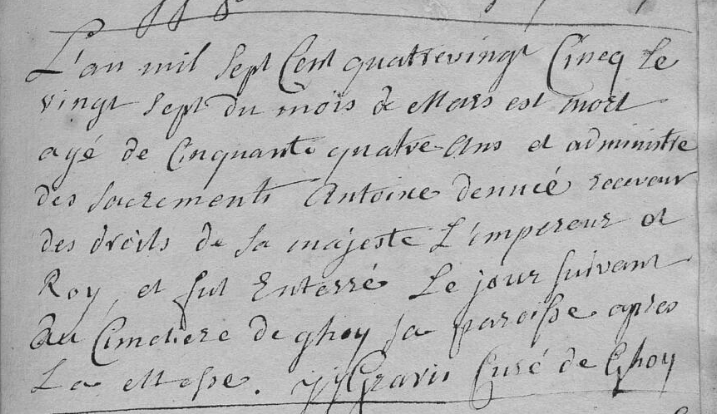 L'an mil sept Cent quatrevingt Cinq le
vingt sept du mois de Mars est mort
agé de Cinquante quatre Ans et administré
des sacrements Antoine denucé receveur
des droits de sa majesté L'empereur et
Roy, et fut Enterré Le jour suivant
au Cimetiere de ghoy sa paroisse apres
La Messe. Gravis Curé de Ghoy